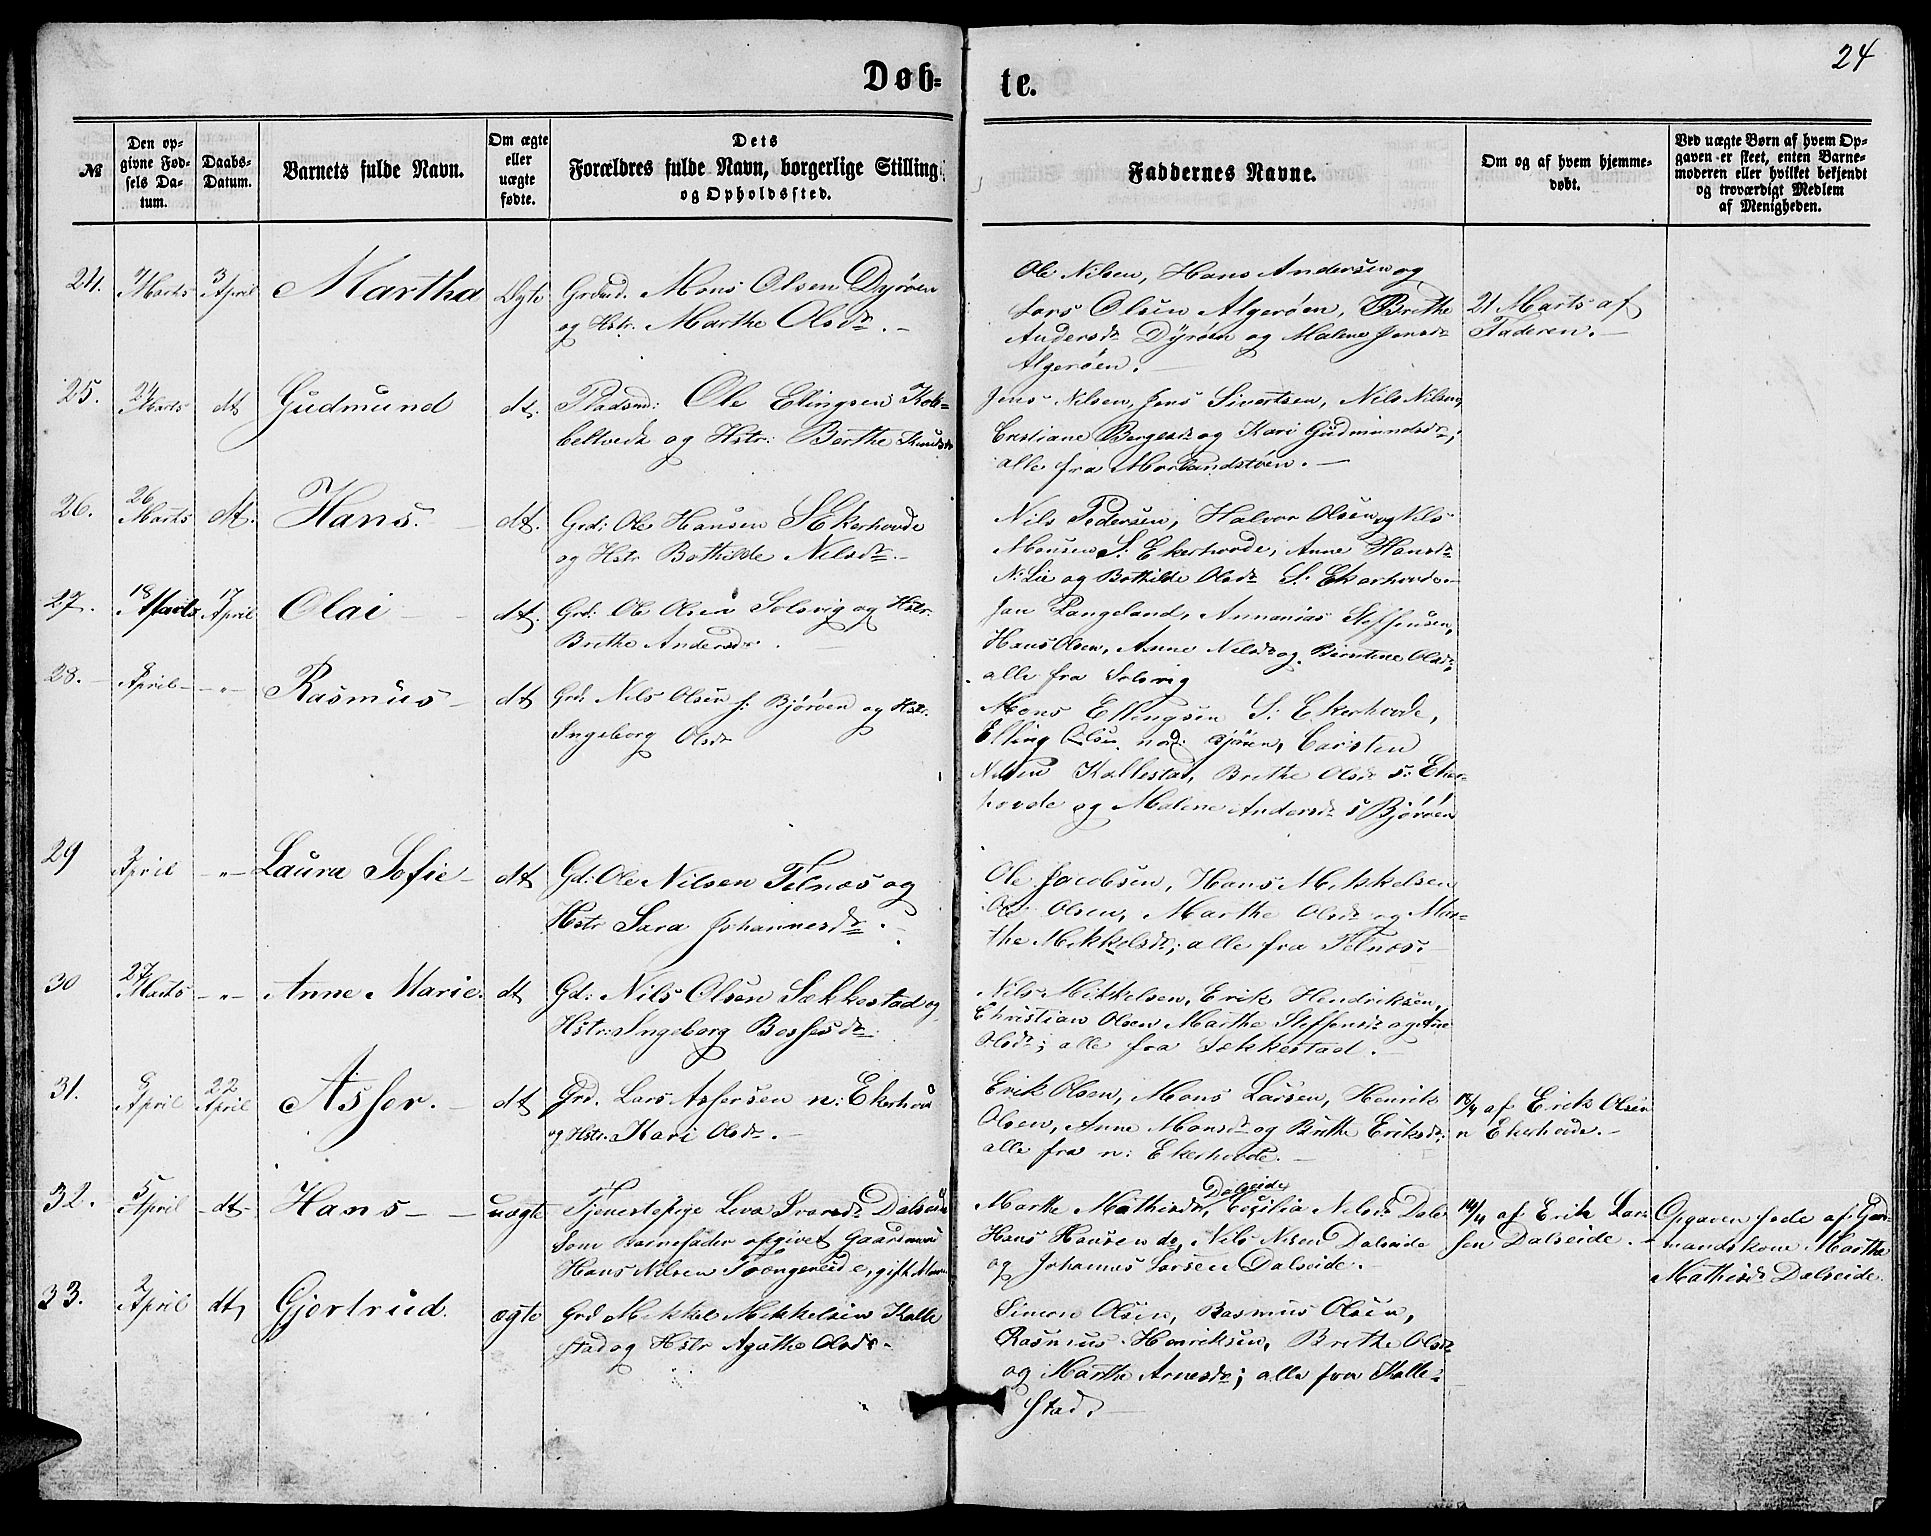 24
Døb-
te.
№
Den op-
givne Fød-
sels Da-
tum.
Daabs-
Datum.
Barnets fulde Navn.
Om ægte
eller
uægte
fødte.
Dets
Forældres fulde Navn, borgerlige Stilling
og Opholdssted.
Faddernes Navne.
Om og af hvem hjemme-
døbt.
Ved uægte Børn af hvem Op-
gaven er skeet, enten Barne-
moderen eller hvilket bekjendt
og troværdigt Medlem
af Menigheden.
24. 7 Marts 3 April Martha Ægte
Grdmd. Mons Olsen Dyröen
og Hstr. Marthe Olsdr. -
Ole Nilsen, Hans Andersen og
Lars Olsen Algeröen, Brethe
Andersdr Dyröen og Malene Jensdr
Algeröen.
21 Marts af
Faderen. -
25. 24 Marts dt Gudmund dt.
Pladsmd: Ole Elingsen Kob-
beltvedt og Hstr: Berthe Knudsdr
Jens Nilsen, Jens Sivertsen, Nils Nilsen,
Cristiane Børgesdr og Kari Gudmundsdr;
alle fra Morlandstöen. -
26. 26 Marts dt. Hans. dt.
Grd: Ole Hansen S Ekerhovde
og Hstr Bothilde Nilsdr. -
Nils Pedersen, Halvor Olsen og Nils
Monsen S: Ekerhovde, Anne Hansdr
N: Lie og Bothilde Olsdr S: Ekerhovde -
27. 18 Marts 17 April Olai - dt.
Grd: Ole Olsen Solsvig og Hstr:
Brethe Andersdr. -
Jan Langeland, Annanias Steffensen,
Hans Olsen, Anne Nilsdr og Berntine Olsdr,
alle fra Solsvig
28. - 8 April - - " - Rasmus - dt
Grd: Nils Olsen s: Björöen og Hstr.
Ingeborg Olsdr
Mons Ellingsen S: Ekerhovde,
Elling Olsen nod: Björöen, Carsten
Nilsen Kallestad, Brethe Olsdr s: Eker-
hovde og Malene Andersdr s Björöen
29 2 April - " - Laura Sofie - dt
Gd: Ole Nilsen Telnæs og
Hstr Sara Johannesdr. -
Ole Jacobsen, Hans Mikkelsen
Ole Olsen, Marthe Olsdr og Mar-
the Mikkelsdr; alle fra Telnæs.
30 27 Marts - " - Anne Marie. dt
Gd: Nils Olsen Sækkestad og
Hstr: Ingeborg Besfesdr.
Nils Mikkelsen, Erik Hendriksen,
Christian Olsen Marthe Steffensdr og Ane
Olsdr; alle fra Sækkestad. -
31. 9 April 22 April Asser. - dt
Grd. Lars Assersen n: Ekerhovd
og Hstr: Kari Olsdr. -
Erik Olsen, Mons Larsen, Henrik
Olsen, Anne Monsdr og Brithe Eriksdr;
alle fra n: Ekerhovde. -
18/4 af Erik Olsen
n Ekerhovde. -
32. 5 April - dt - Hans - - uægte
Tjenestepige Leva Ivarsdr Dalseide
Som Barnefader opgivet Gaardmand
Hans Nilsen Trængereide, gift Mand
Dalseide
Marthe Mathisdr, Cecilia Nilsdr Dalse
Hans Hansen do, Nils Nisen Dalseide
og Johannes Larsen Dalseide. -
14/4 af Erik Lar-
sen Dalseide. -
Opgaven skede af Gård-
mandskone Martha
Mathisdr Dalseide.
33. 2 April dt, Gjertrud. ægte
Grd Mikkel Mikkelsen Kalle
stad og Hstr Agathe Olsdr. -
Simon Olsen, Rasmus Olsen,
Rasmus Henriksen, Brethe Olsdr
og Marthe Arnesdr; alle fra Kalle-
stad. -